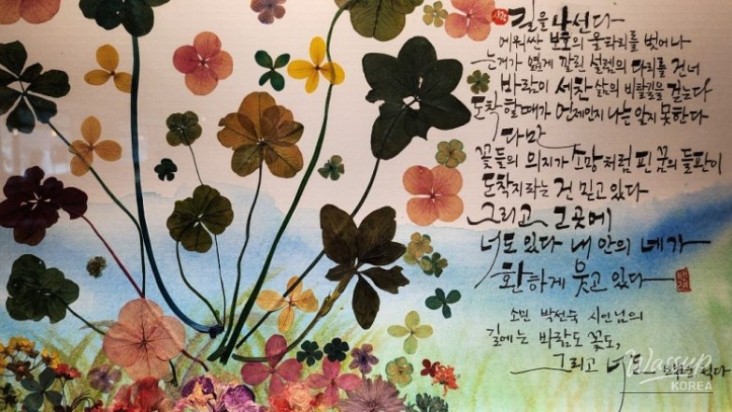 길을 나선다
에워싼 보호의 울타리를 벗어나
누군가 옅게 깔린 설렘의 다리를 건너
바람이 세찬 삶의 비탈길을 걷는다
도착할 때가 언제인지 나는 알지 못한다
다만
꽃들의 의지가 소망처럼 핀 꿈의 들판이
도착지라는 건 믿고 있다
그리고 그곳에
너도 있다 내 안의 네가
환하게 웃고 있다
소민 박선숙 시인님의
길에는 바람도 꽃도,
그리고 너도
Wassup
KOREA